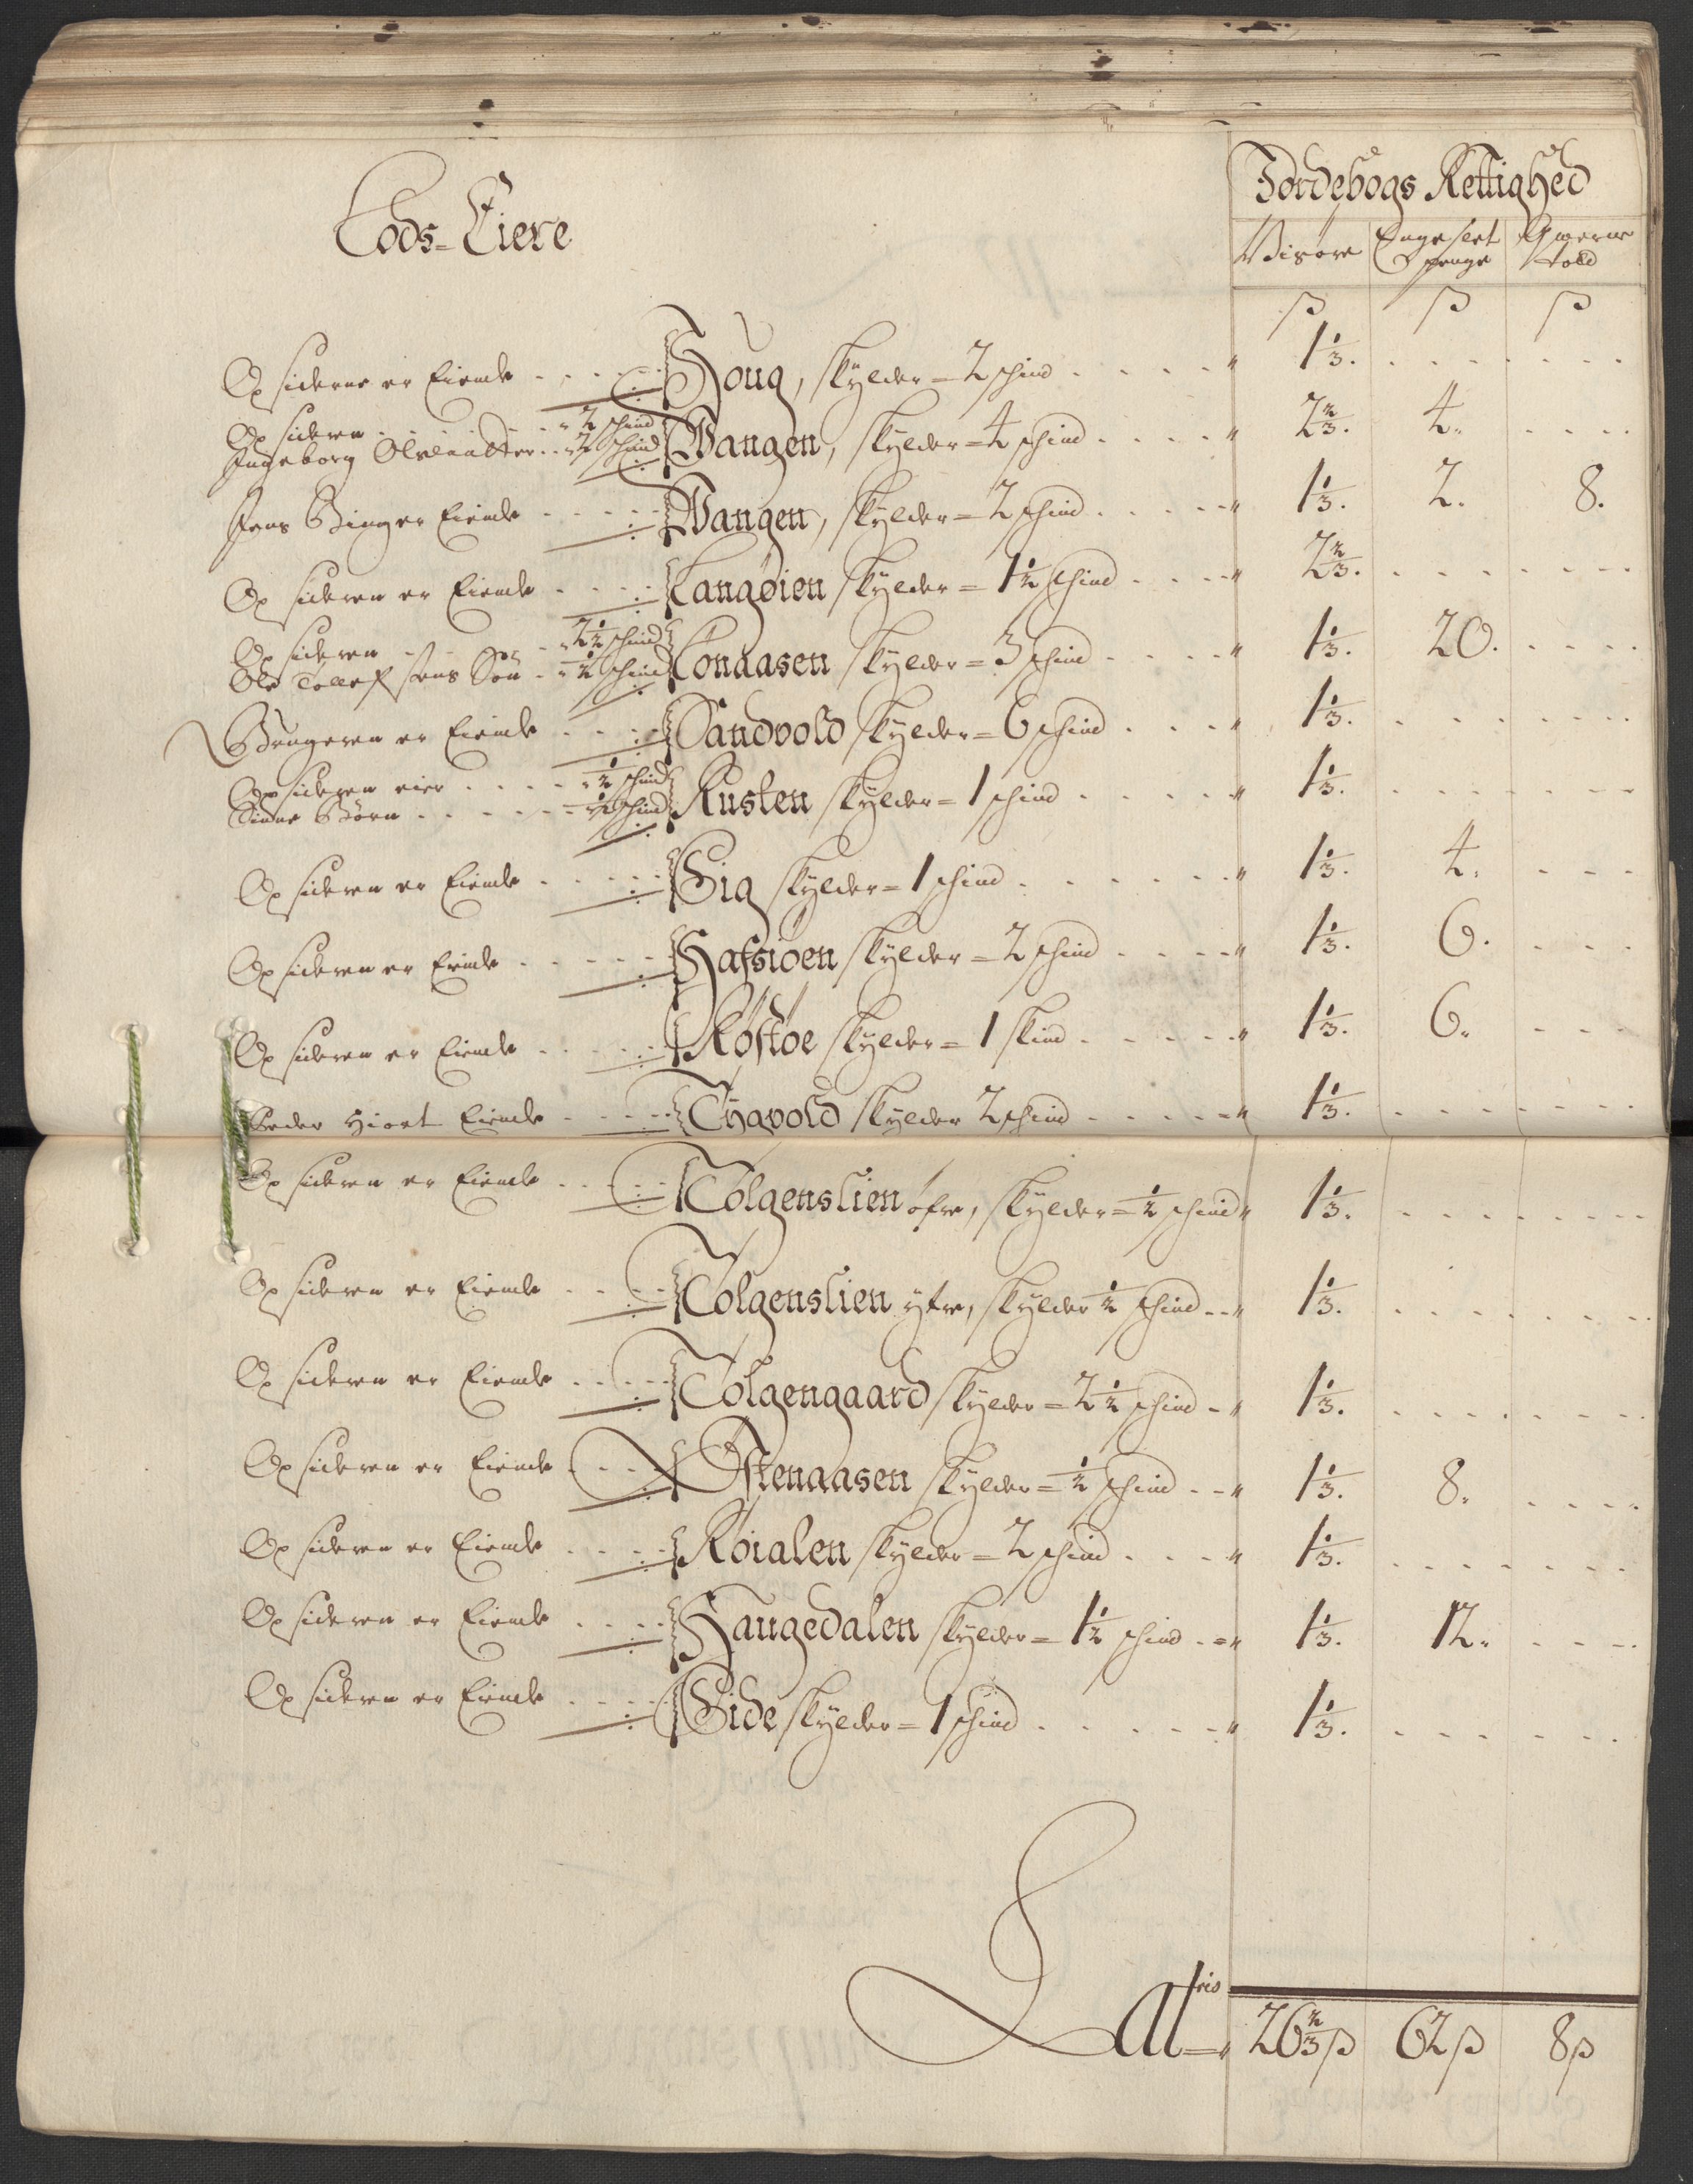 Jordebogs Rettighed
Lods-Eiere
Visøre Engeslet penge Qvern told
ß ß ß
Opsideren er Eiende Houg, skylder = 2 schind 1 1/3.
Opsideren 2 schind
Ingeborg Olsdatter 2 schind Vangen, skylder = 4 schind 2 2/3. 4.
Jens Binger Eiende Vangen, skylder = 2 schind 1 1/3. 2. 8.
Opsideren er Eiende Langøien skylder = 1 1/2 schind 2 2/3.
Opsideren 2 1/2 schind
Ole Tollefsens Søn 1/2 schind Lonaasen skylder = 3 schind 1 1/3. 20.
Brugeren er Eiende Sandvold skylder = 6 schind 1 1/3.
Opsideren eier 1/2 schind
Sinne Børn 1/2 schind Kuslen skylder = 1 schind 1 1/3.
Opsideren er Eiende Sig skylder = 1 schind 1 1/3. 4.
Opsideren er Eiende Hafsioen skylder = 2 schind 1 1/3. 6.
Opsideren er Eiende Røstøe skylder = 1 skind 1 1/3. 6.
Peder Hiort Eiende Thavold skylder 2 schind 1 1/3.
Opsideren er Eiende Tolgenslien øfre, skylder = 1/2 schind 1 1/3.
Opsideren er Eiende Tolgenslien ytre, skylder 1/2 schind 1 1/3.
Opsideren er Eiende Tolgengaard skylder = 2 1/2 schind 1 1/3.
Opsideren er Eiende Østenaasen skylder = 1/2 schind 1 1/3. 8.
Opsideren er Eiende Røialen skylder = 2 schind 1 1/3.
Opsideren er Eiende Haugedalen skylder = 1 1/2 schind 1 1/3. 12.
Opsideren er Eiende Side skylder = 1 schind 1 1/3.
Latris 26 2/3 ß 62 ß 8 ß